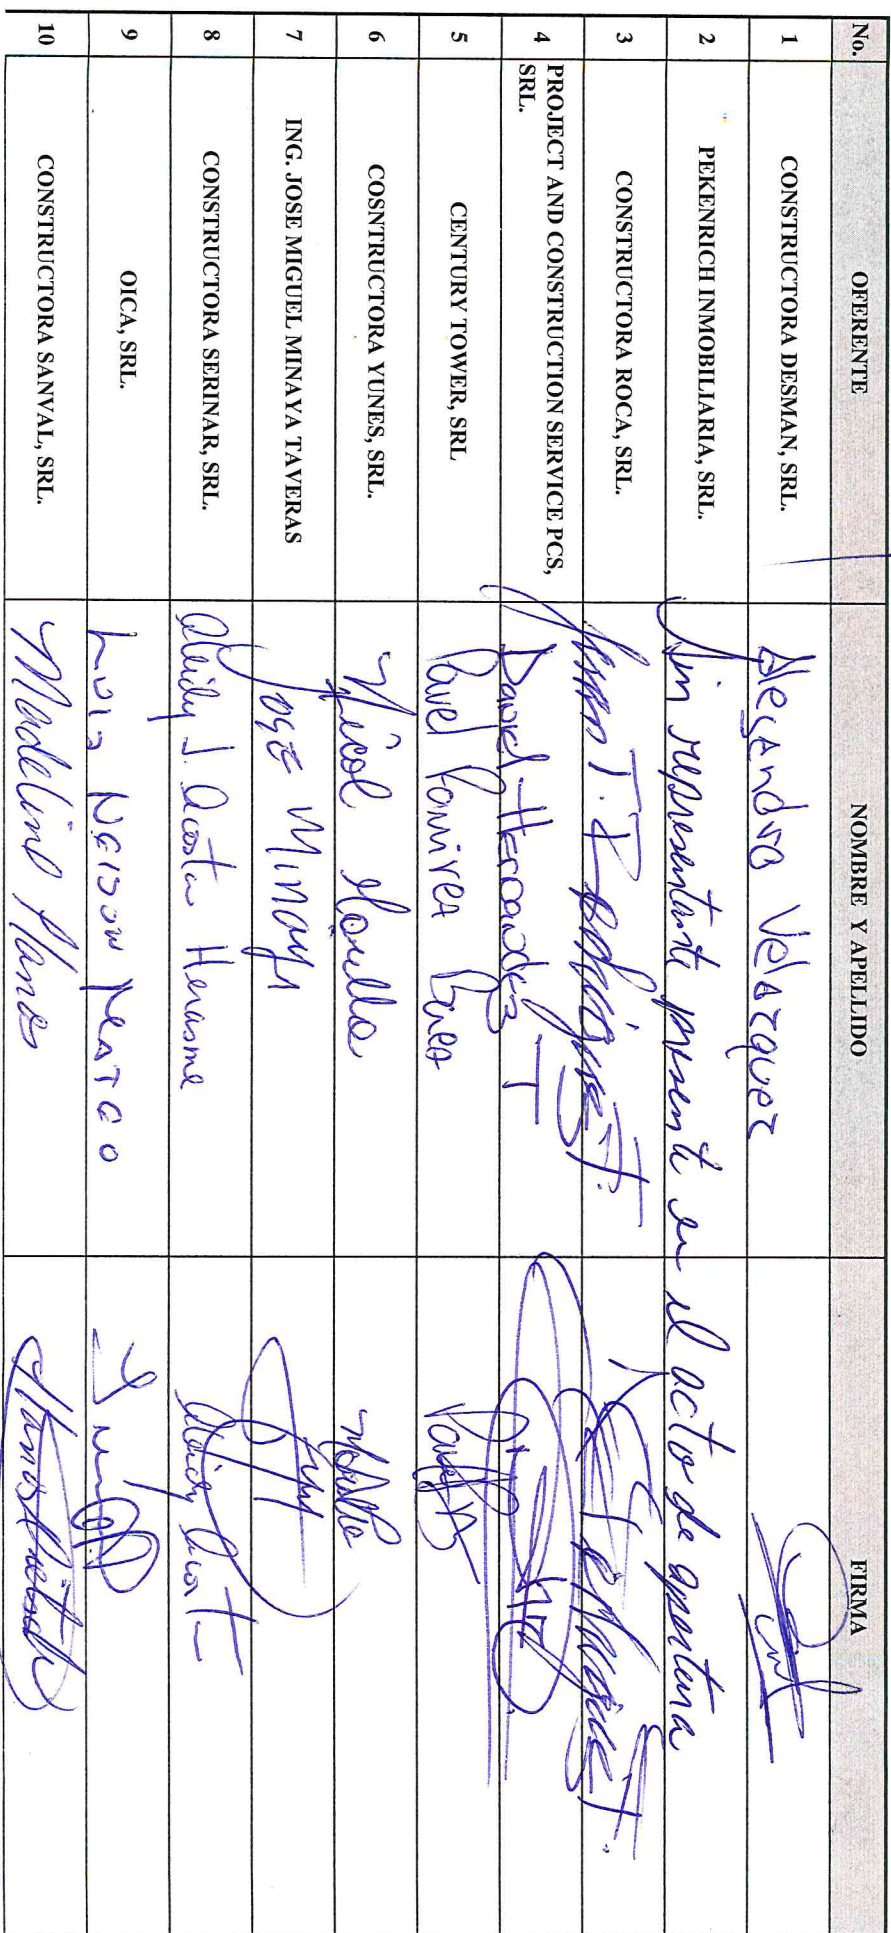 No. OFERENTE NOMBRE Y APELLIDO FIRMA
1 CONSTRUCTORA DESMAN, SRL. Alejandro Velazquez
2 PEKENRICH INMOBILIARIA, SRL. Sin representante presente en el acto de apertura
3 CONSTRUCTORA ROCA, SRL. T. Rodríguez T.
4 PROJECT AND CONSTRUCTION SERVICE PCS,
SRL. Daniel Hernandez T
5 CENTURY TOWER, SRL Pavel Ramirez
6 COSNTRUCTORA YUNES, SRL. Nicol
7 ING. JOSE MIGUEL MINAYA TAVERAS JOSE MINAYA
8 CONSTRUCTORA SERINAR, SRL. J. Acosta Herasme
9 OICA, SRL. Luis Neison Mateo
10 CONSTRUCTORA SANVAL, SRL. Llanos